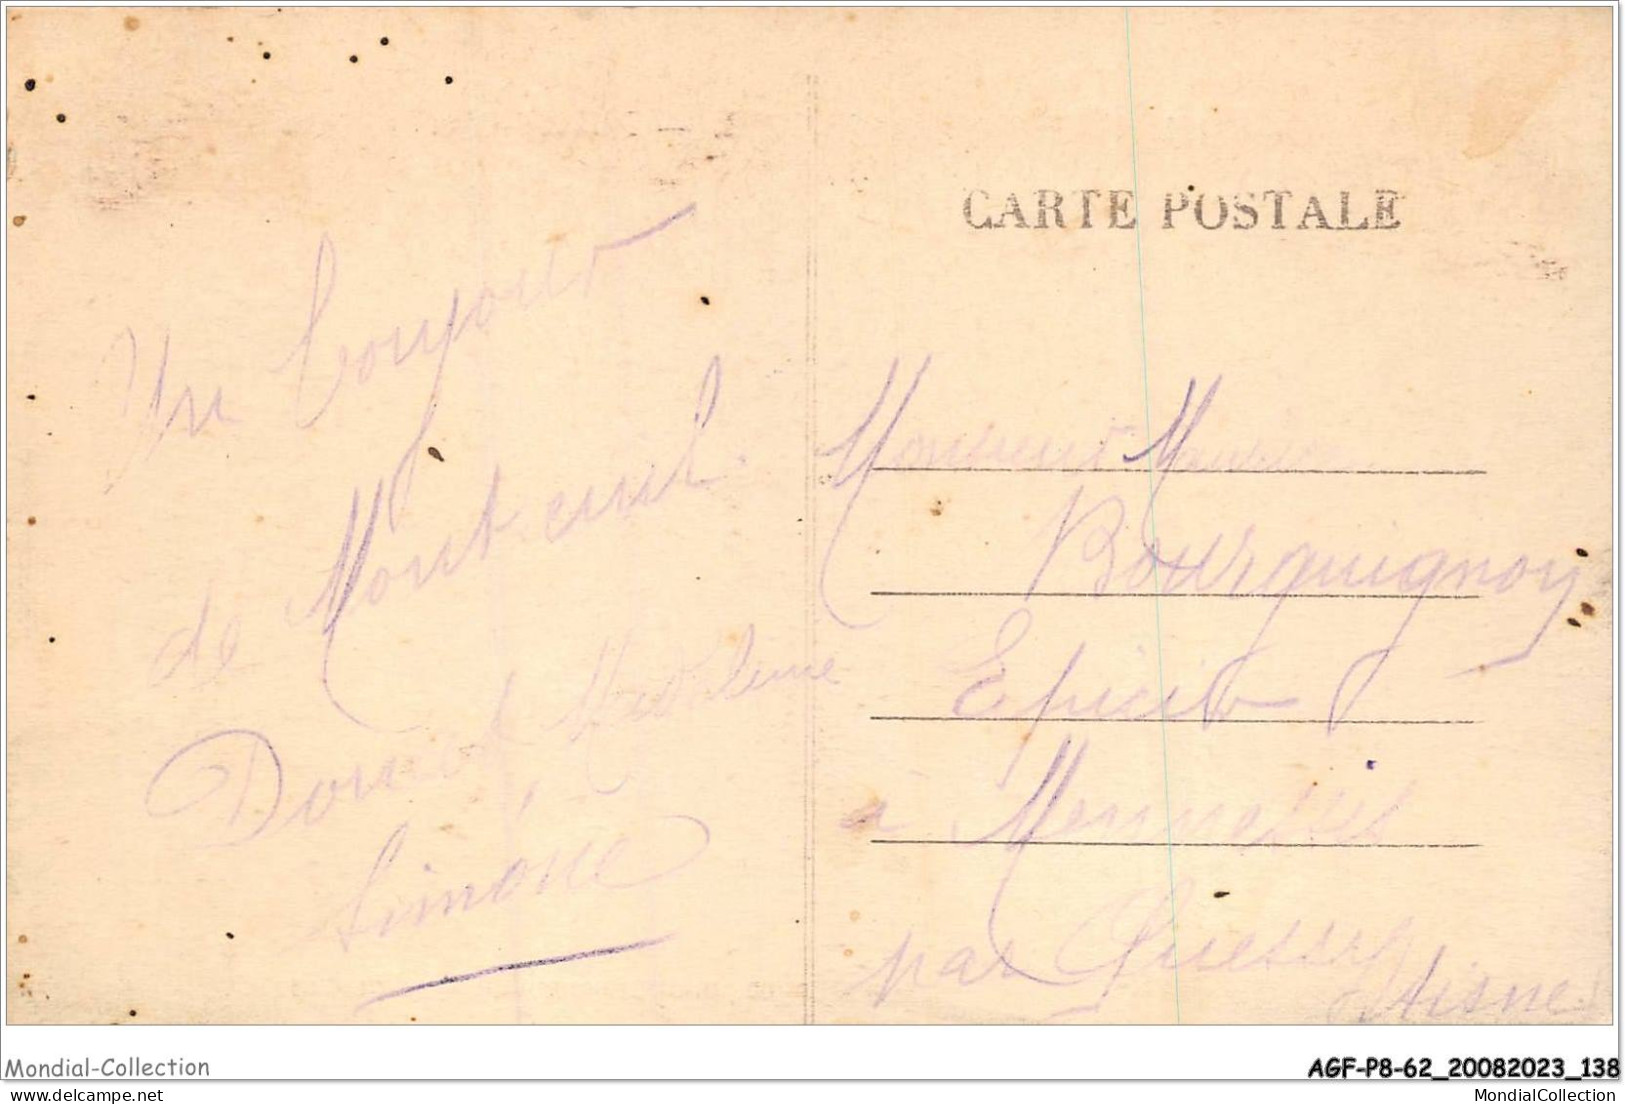 CARTE POSTALE
Un bonjour
de Montreuil
Madeleine
Simone
Monsieur Maurice
Bourguignon
Epicier
à Mennessis
par Quessy
Aisne
Mondial-Collection
AGF-P8-62_20082023_138
www.delcampe.net
MondialCollection